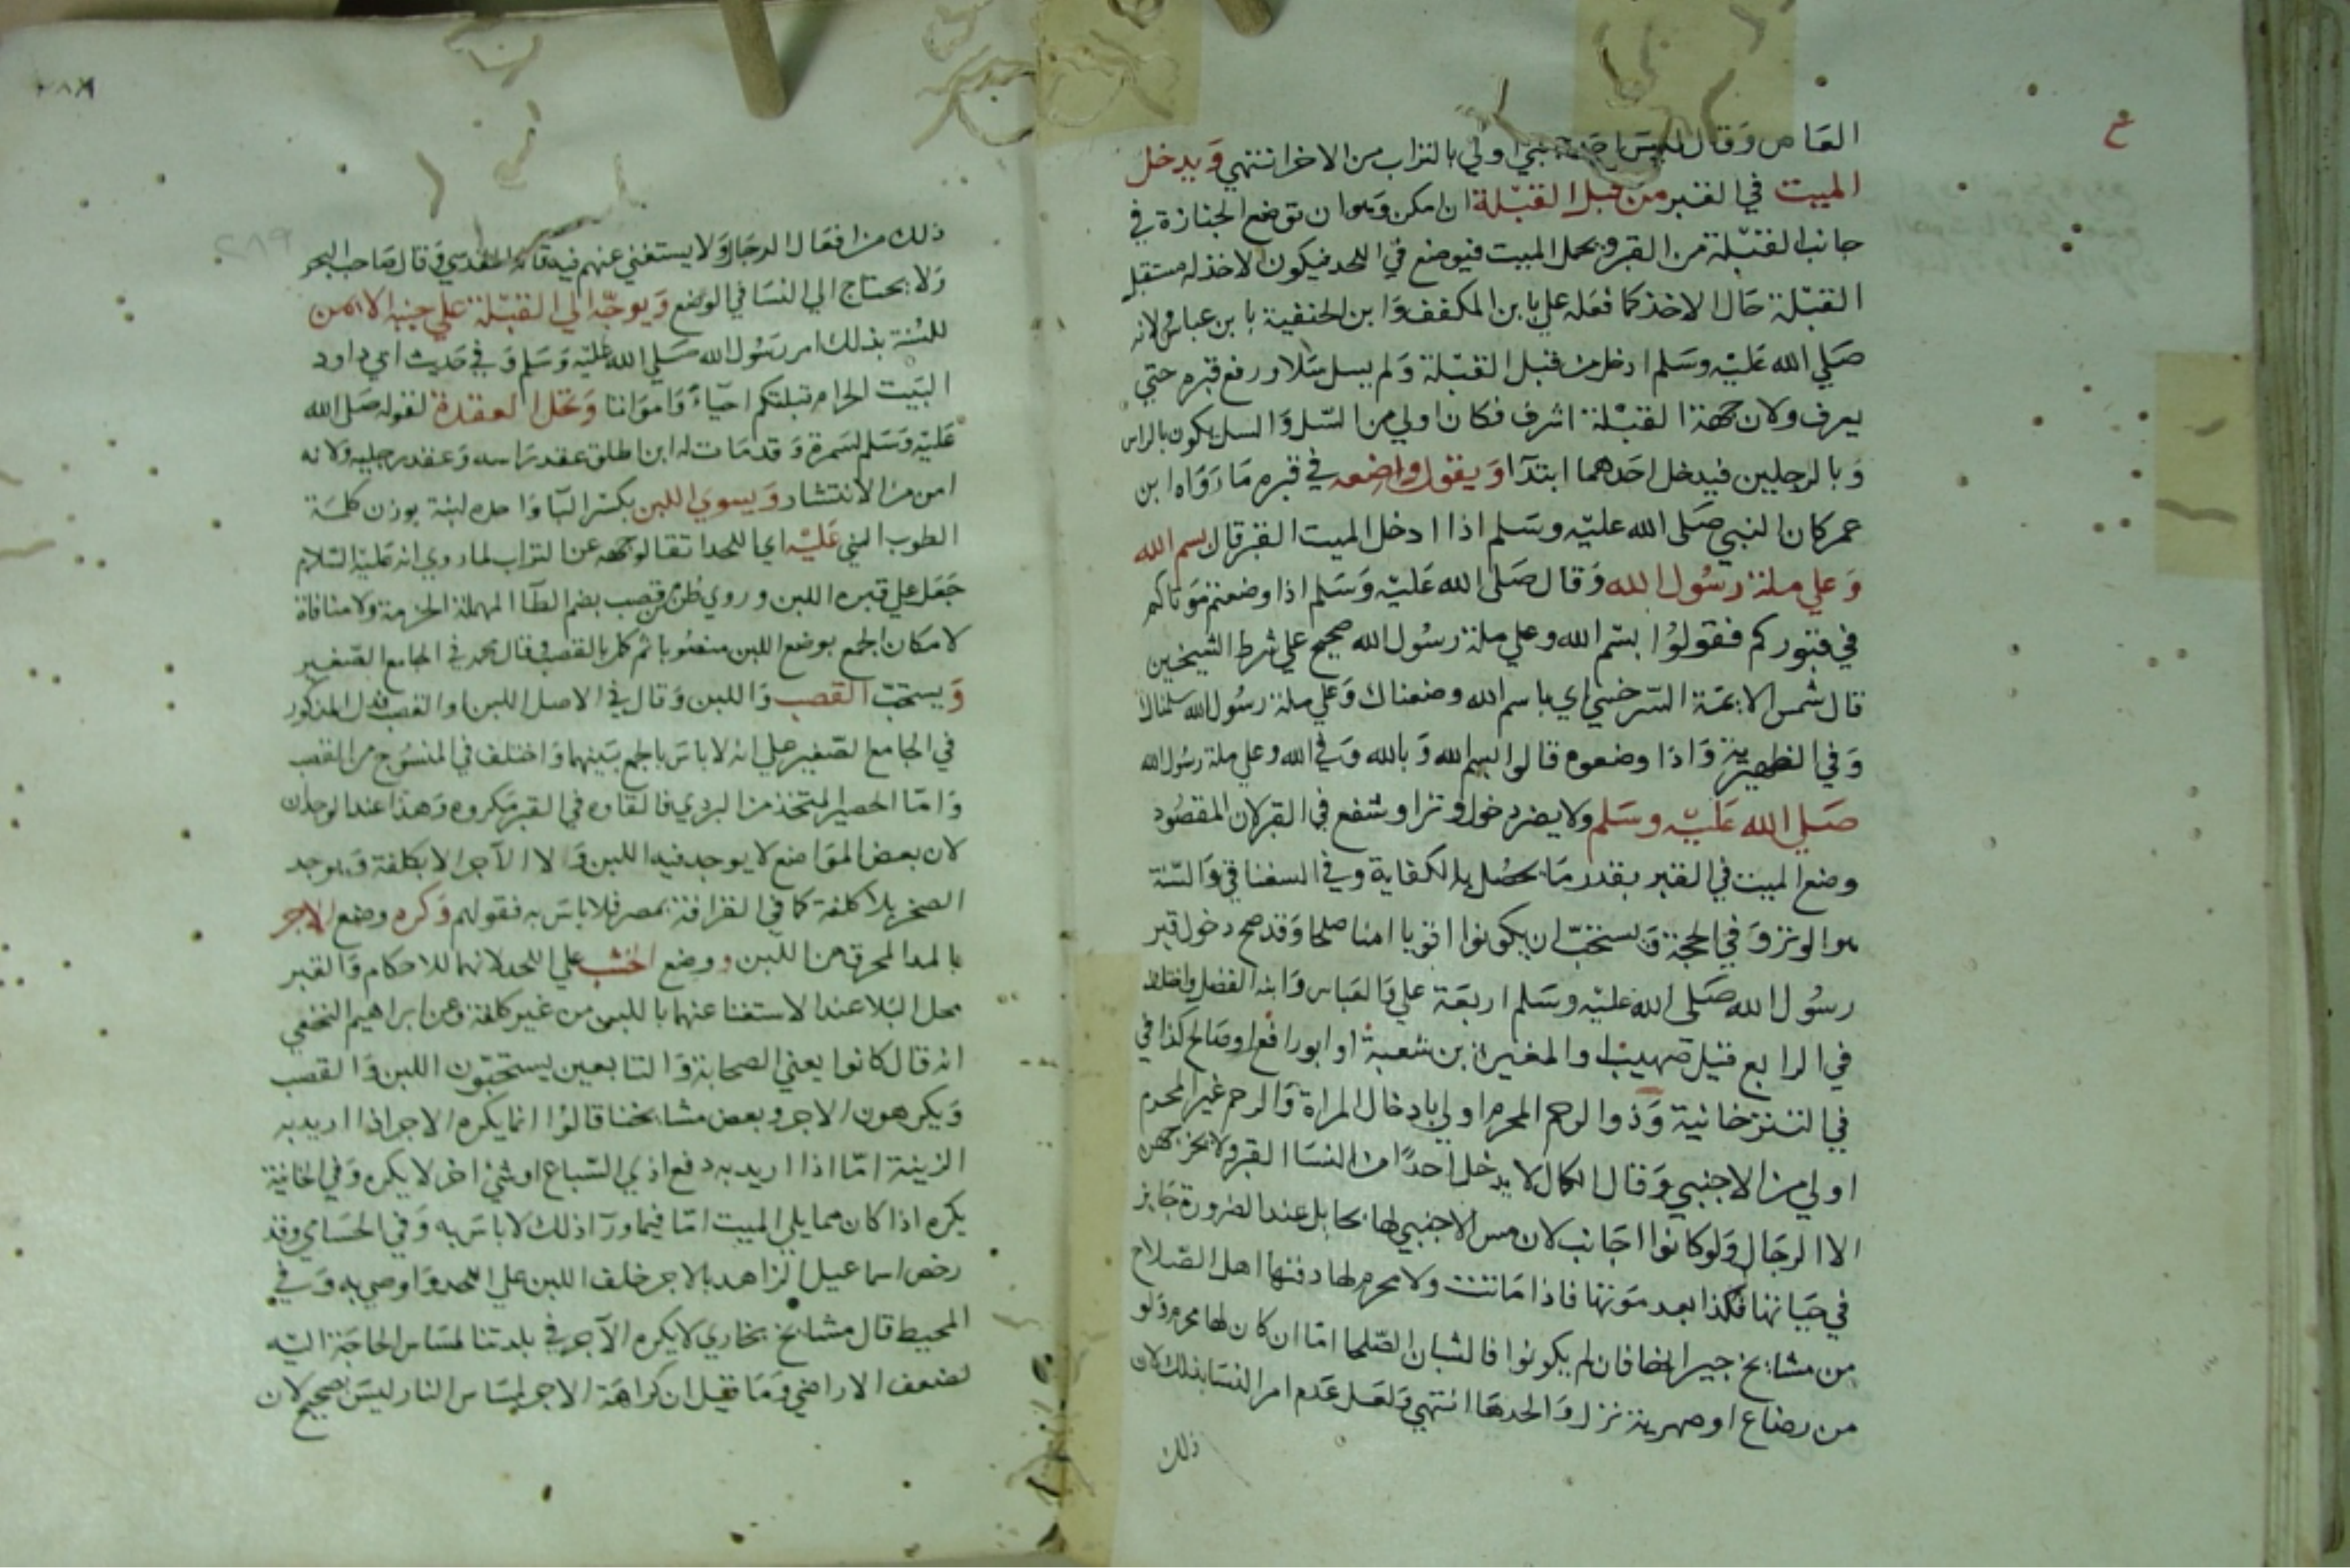 العاص وقال ليس احد جنبي اولي بالتراب من الاخر انتهي ويدخل
الميت في القبر من قبل القبلة ان امكن وهو ان توضع الجنازة في
جانب القبلة من القبر ويحمل الميت فيوضع في اللحد فيكون الاخذ له مستقبل
القبلة حال الاخذ كما فعله علي بابن المكفف وابن الحنفية بابن عباس لانه
صلي الله عليه وسلم ادخل من قبل القبلة ولم يسل سلا ورفع قبره حتي
يعرف ولان جهة القبلة اشرف فكان اولي من السل والسل يكون بالراس
وبالرجلين فيدخل احدهما ابتدا ويقول واضعه في قبره ما رواه ابن
عمر كان النبي صلى الله عليه وسلم اذا ادخل الميت القبر قال بسم الله
وعلي ملة رسول الله وقال صلى الله عليه وسلم اذا وضعتم موتاكم
في قبوركم فقولوا بسم الله وعلي ملة رسول الله صحيح علي شرط الشيخين
قال شمس الايمة السرخسي اي باسم الله وضعناك وعلي ملة رسول الله سلمناك
وفي الظهيرية واذا وضعوه قالوا بسم الله وبالله وفي الله وعلي ملة رسول الله
صلي الله عليه وسلم ولا يضر دخول وتر او شفع في القبر لان المقصود
وضع الميت في القبر بقدر ما يحصل به الكفاية وفي السغناقي والسنة
هو الوتر وفي الحجة ويستحب ان يكونوا اقويا امنا صلحا وقد صح دخول قبر
رسول الله صلى الله عليه وسلم اربعة علي والعباس وابنه الفضل واختلف
في الرابع قيل صهيب او المغيرة بن شعبة او ابو رافع او صالح كذا في
في التترخانية وذو الرحم المحرم اولي بادخال المراة والرحم غير المحرم
اولي من الاجنبي وقال الكمال لا يدخل احدا من النسا القبر ولا يخرجهن
الا الرجال ولو كانوا اجانب لان مس الاجنبي لها بحايل عند الضرورة جايز
في حياتها فكذا بعد موتها فاذا ماتت ولا محرم لها دفنها اهل الصلاح
من مشايخ جيرانها فان لم يكونوا فالشبان الصلحا اما ان كان لها محرم ولو
من رضاع او صهرية نزل والحدها انتهي ولعل عدم امر النسا بذلك لان
ذلك
ذلك من افعال الرجال ولا يستغني عنهم فيه قاله المقدسي وقال صاحب البحر
ولا يحتاج الي النسا في الوضع ويوجه الي القبلة علي جنبه الايمن
للسنة بذلك امر رسول الله صلي الله عليه وسلم وفي حديث ابي داود
البيت الحرام قبلتكم احياء وامواتا وتحل العقدة لقوله صلي الله
عليه وسلم لسمرة وقد مات له ابن اطلق عقد راسه وعقد رجليه ولانه
امن من الانتشار ويسوي اللبن بكسر البا واحده لبنة بوزن كلمة
الطوب الني عليه اي اللحد اتقا لوجهه عن التراب لما روي انه عليه السلام
جعل علي قبره اللبن وروي طن من قصب بضم الطا المهملة الحزمة ولا منافاة
لامكان الجمع بوضع اللبن منصوبا ثم كمل بالقصب وقال محمد في الجامع الصغير
ويستحب القصب واللبن وقال في الاصل اللبن او القصب فدل المذكور
في الجامع الصغير علي انه لا باس بالجمع بينهما واختلف في المنسوج من القصب
واما الحصير المتخذ من البردي فالقاوه في القبر مكروه وهذا عند الوجدان
لان بعض المواضع لا يوجد فيه اللبن ولا الآجر الا بكلفة ويوجد
الصخر بلا كلفة كما في القرافة بمصر فلا باس به فقولهم وكره وضع الاجر
بالمد المحرق من اللبن ووضع الخشب علي اللحد لانهما للاحكام والقبر
محل البلا عند الاستغنا عنهما باللبن من غير كلفة وعن ابراهيم النخعي
انه قال كانوا يعني الصحابة والتابعين يستحبون اللبن والقصب
ويكرهون الاجر وبعض مشايخنا قالوا انما يكره الاجر اذا اريد به
الزينة اما اذا اريد به دفع اذي السباع او شي اخر لا يكره وفي الخانية
يكره اذا كان مما يلي الميت اما فيما ورآ ذلك لا باس به وفي الحسامي وقد
رخص اسماعيل الزاهد بالاجر خلف اللبن علي اللحد واوصي به وفي
المحيط قال مشايخ بخاري لا يكره الآجر في بلدتنا لمساس الحاجة اليه
لضعف الاراضي وما قيل ان كراهة الاجر لمساس النار ليس بصحيح لان